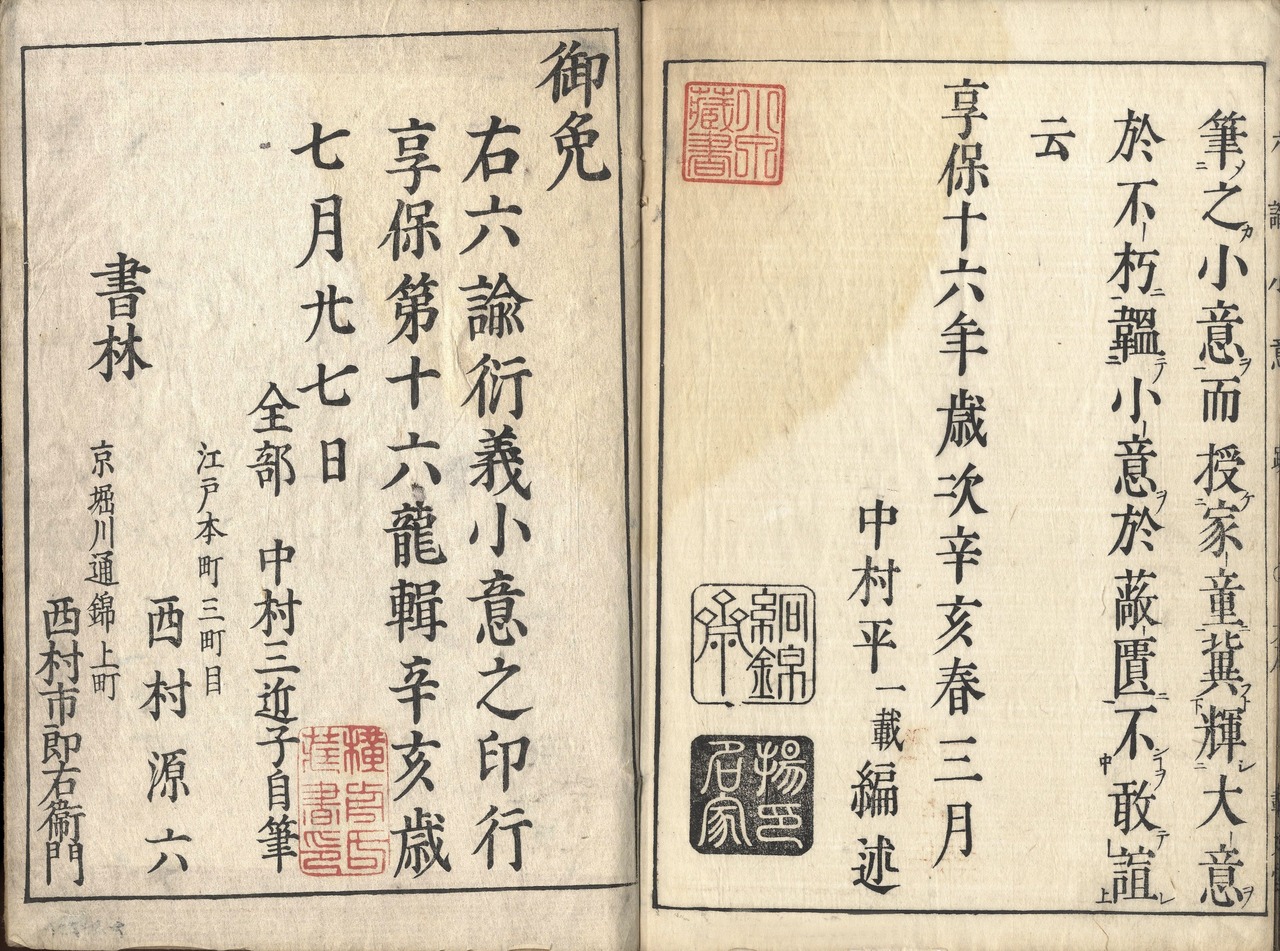 筆之小意而授家童冀輝大意
於不朽韞小意於蔽匱不敢諠
云
享保十六年歳次辛亥春三月
中村平一載編述
絅錦斎
揚名家
御免
右六諭衍義小意之印行
享保第十六龍輯辛亥歳
七月廿七日
全部 中村三近子自筆
江戸本町三町目
西村源六
書林
京堀川通錦上町
西村市郎右衞門